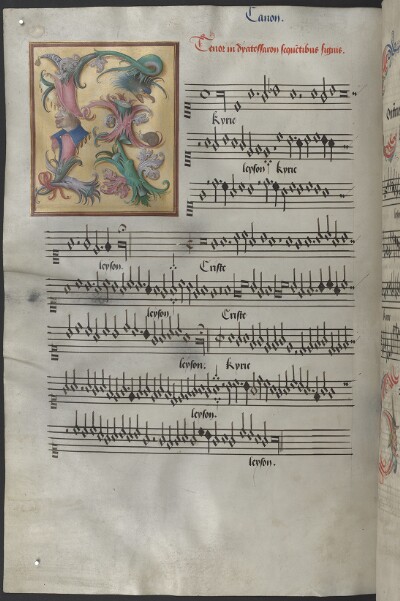 Canon.
Tenor in dyatessaron sequētibus signis.
Kyrie
leyson Kyrie
leyson. Criste
leyson Criste
leyson. Kyrie
leyson.
leyson.